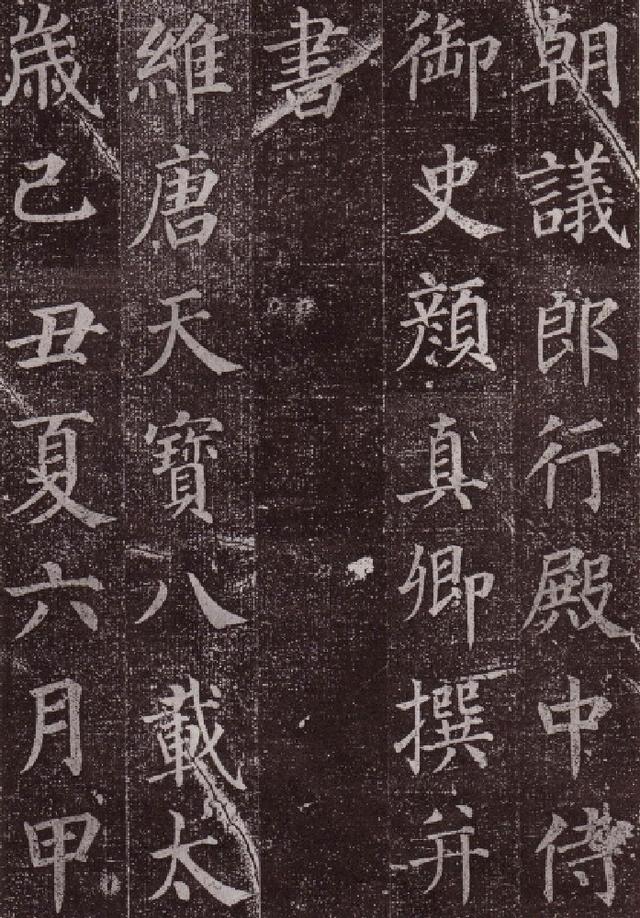 朝議郎行殿中侍
御史顏真卿撰并
書
維唐天寶八載太
歲己丑夏六月甲